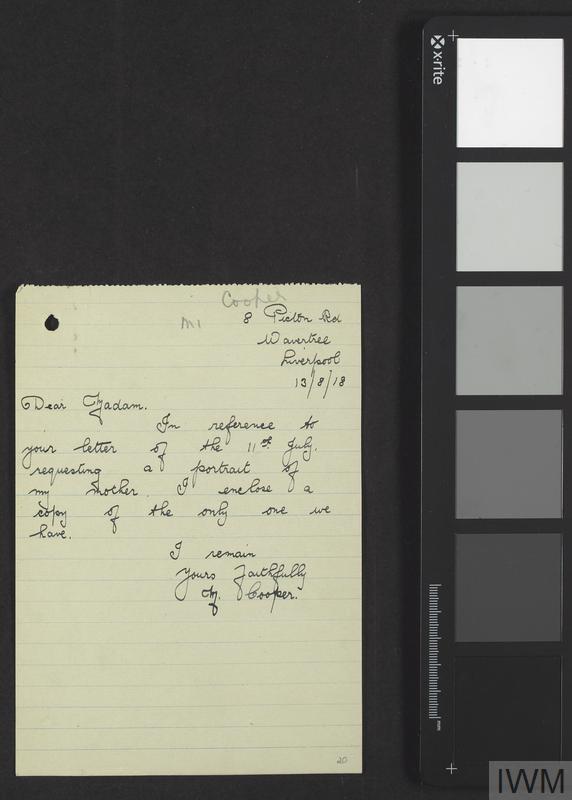 Cooper
M1
8 Picton Rd
Wavertree
Liverpool
13/8/18
Dear Madam.
In reference to
your letter of the 11th July.
requesting a portrait of
my mother. I enclose a
copy of the only one we
have.
I remain
Yours Faithfully
M. Cooper.
20
x-rite
mm
IWM